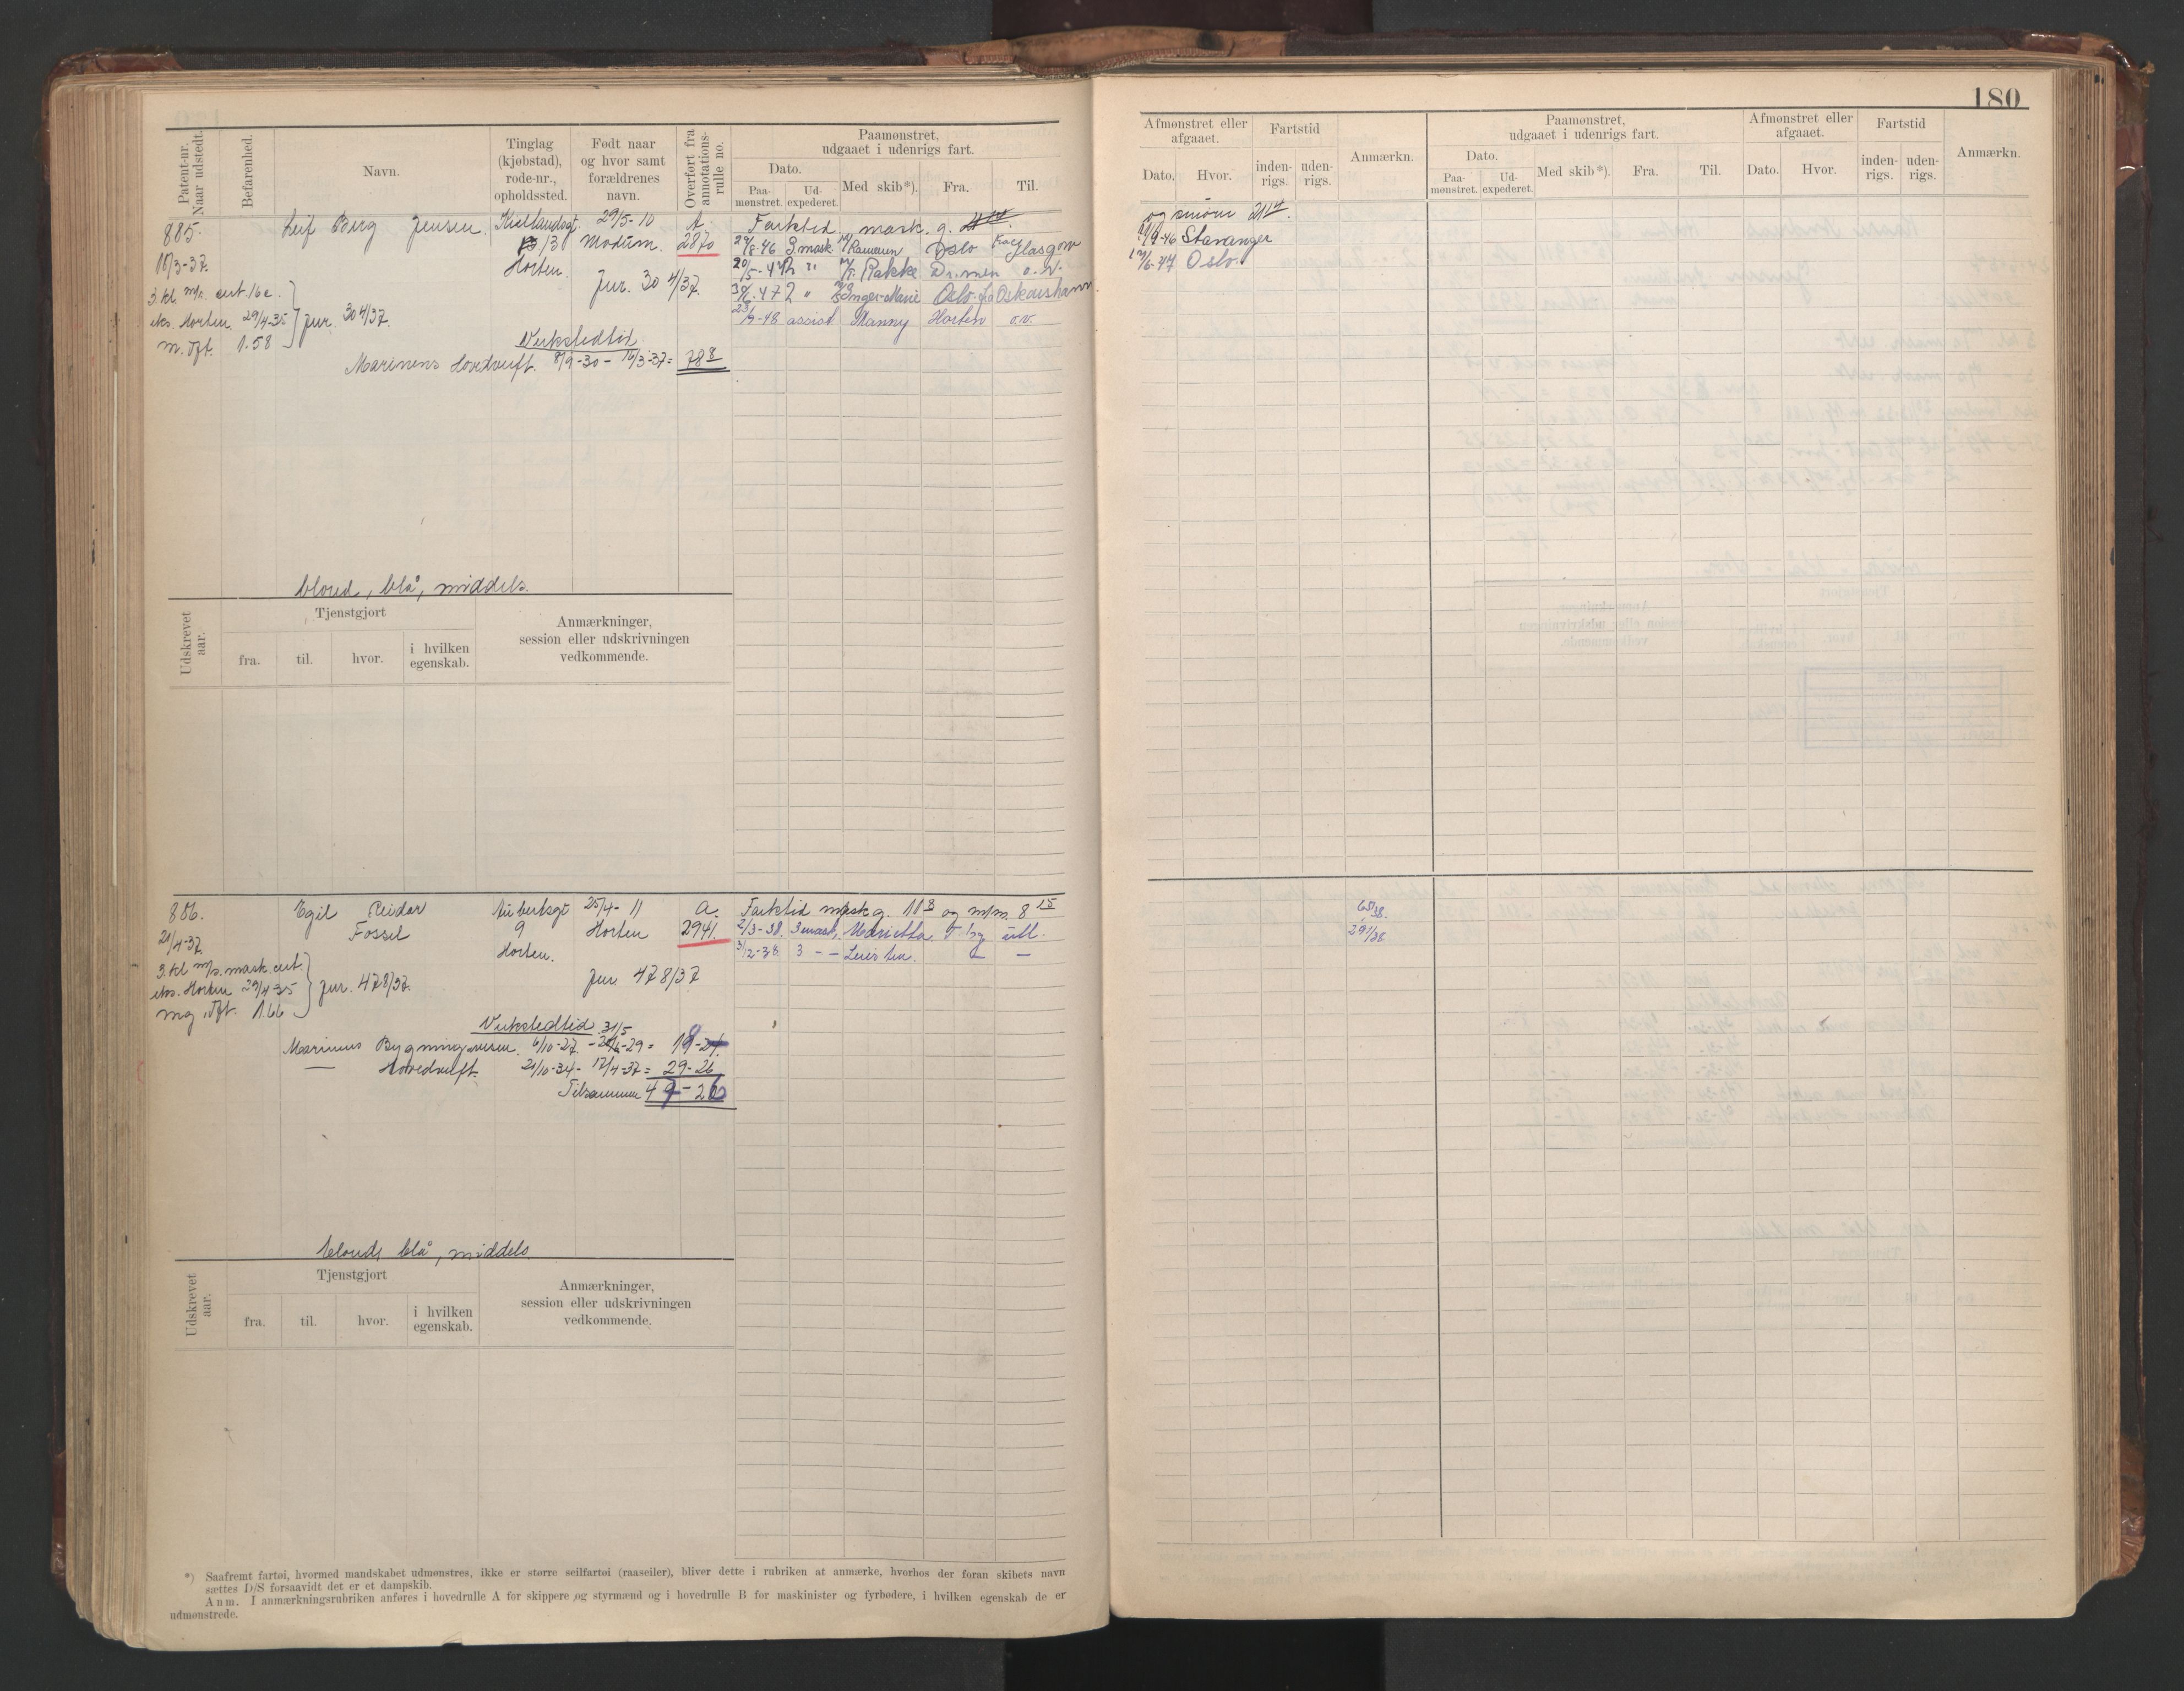 180
Patent-nr. Naar udstedt.
Befarenhed.
Navn.
Tinglag (kjøbstad), rode-nr., opholdssted.
Født naar og hvor samt forældrenes navn.
Overført fra annotations-rulle no.
Paamønstret, udgaaet i udenrigs fart.
Dato.
Paa-mønstret.
Ud-expederet.
Med skib*).
Fra.
Til.
885.
Leif Berg Jensen.
Kiellandsgt. 29/5-10 A.
13 Modum. 2870
Horten.
16/3-37.
Jur. 304/37.
3. kl. m/s. cert. 16c.
eks. Horten 29/4-35 jur. 304/37.
1.58
Verkstedtid
Marinens Hovedverft. 8/9-30 - 16/3-37 = 78 8
Farktid mask. g.
29/8-46 2 mask. Oslo Glasgow
20/5-47 2 " Rakke Dr.men o.v.
2 " Inger-Marie Oslo Oskarshamn
23/9-48 assist. Nanny Horten o.v.
blond, blå, middels.
Udskrevet aar.
Tjenstgjort
fra.
til.
hvor.
i hvilken egenskab.
Anmærkninger, session eller udskrivningen vedkommende.
886.
Egil Reidar
Fossel
Aubertsgt 25/4-11 A.
9 Horten 2941.
Horten.
20/4-37.
Jur 478/37
3. kl m/s. mask. cert.
eks. Horten 29/4-35 jur. 478/37.
1.66
Verkstedtid
31/5
Marinens Bygningsvesen. 6/10-27
— Hovedverft. 21/10-34 - 17/4-37 = 29-26
Tilsammen
Farktid mask g. 11 8 og m/m. 8 15
2/3-38. 3 mask. Marietta. T.bg utl.
3/12-38 3 - - Leiesten. — —
blond, blå, middels.
Udskrevet aar.
Tjenstgjort
fra.
til.
hvor.
i hvilken egenskab.
Anmærkninger, session eller udskrivningen vedkommende.
*) Saafremt fartøi, hvormed mandskabet udmønstres, ikke er større seilfartøi (raaseiler), bliver dette i rubriken at anmærke, hvorhos der foran skibets navn
sættes D/S forsaavidt det er et dampskib.
Anm. I anmærkningsrubriken anføres i hovedrulle A for skippere og styrmænd og i hovedrulle B for maskinister og fyrbødere, i hvilken egenskab de er
udmønstrede.
Afmønstret eller afgaaet.
Dato.
Hvor.
Fartstid
inden-rigs.
uden-rigs.
Anmærkn.
Paamønstret, udgaaet i udenrigs fart.
Dato.
Paa-mønstret.
Ud-expederet.
Med skib*).
Fra.
Til.
Afmønstret eller afgaaet.
Dato.
Hvor.
Fartstid
inden-rigs.
uden-rigs.
Anmærkn.
Stavanger
Oslo.
65/38.
291/38